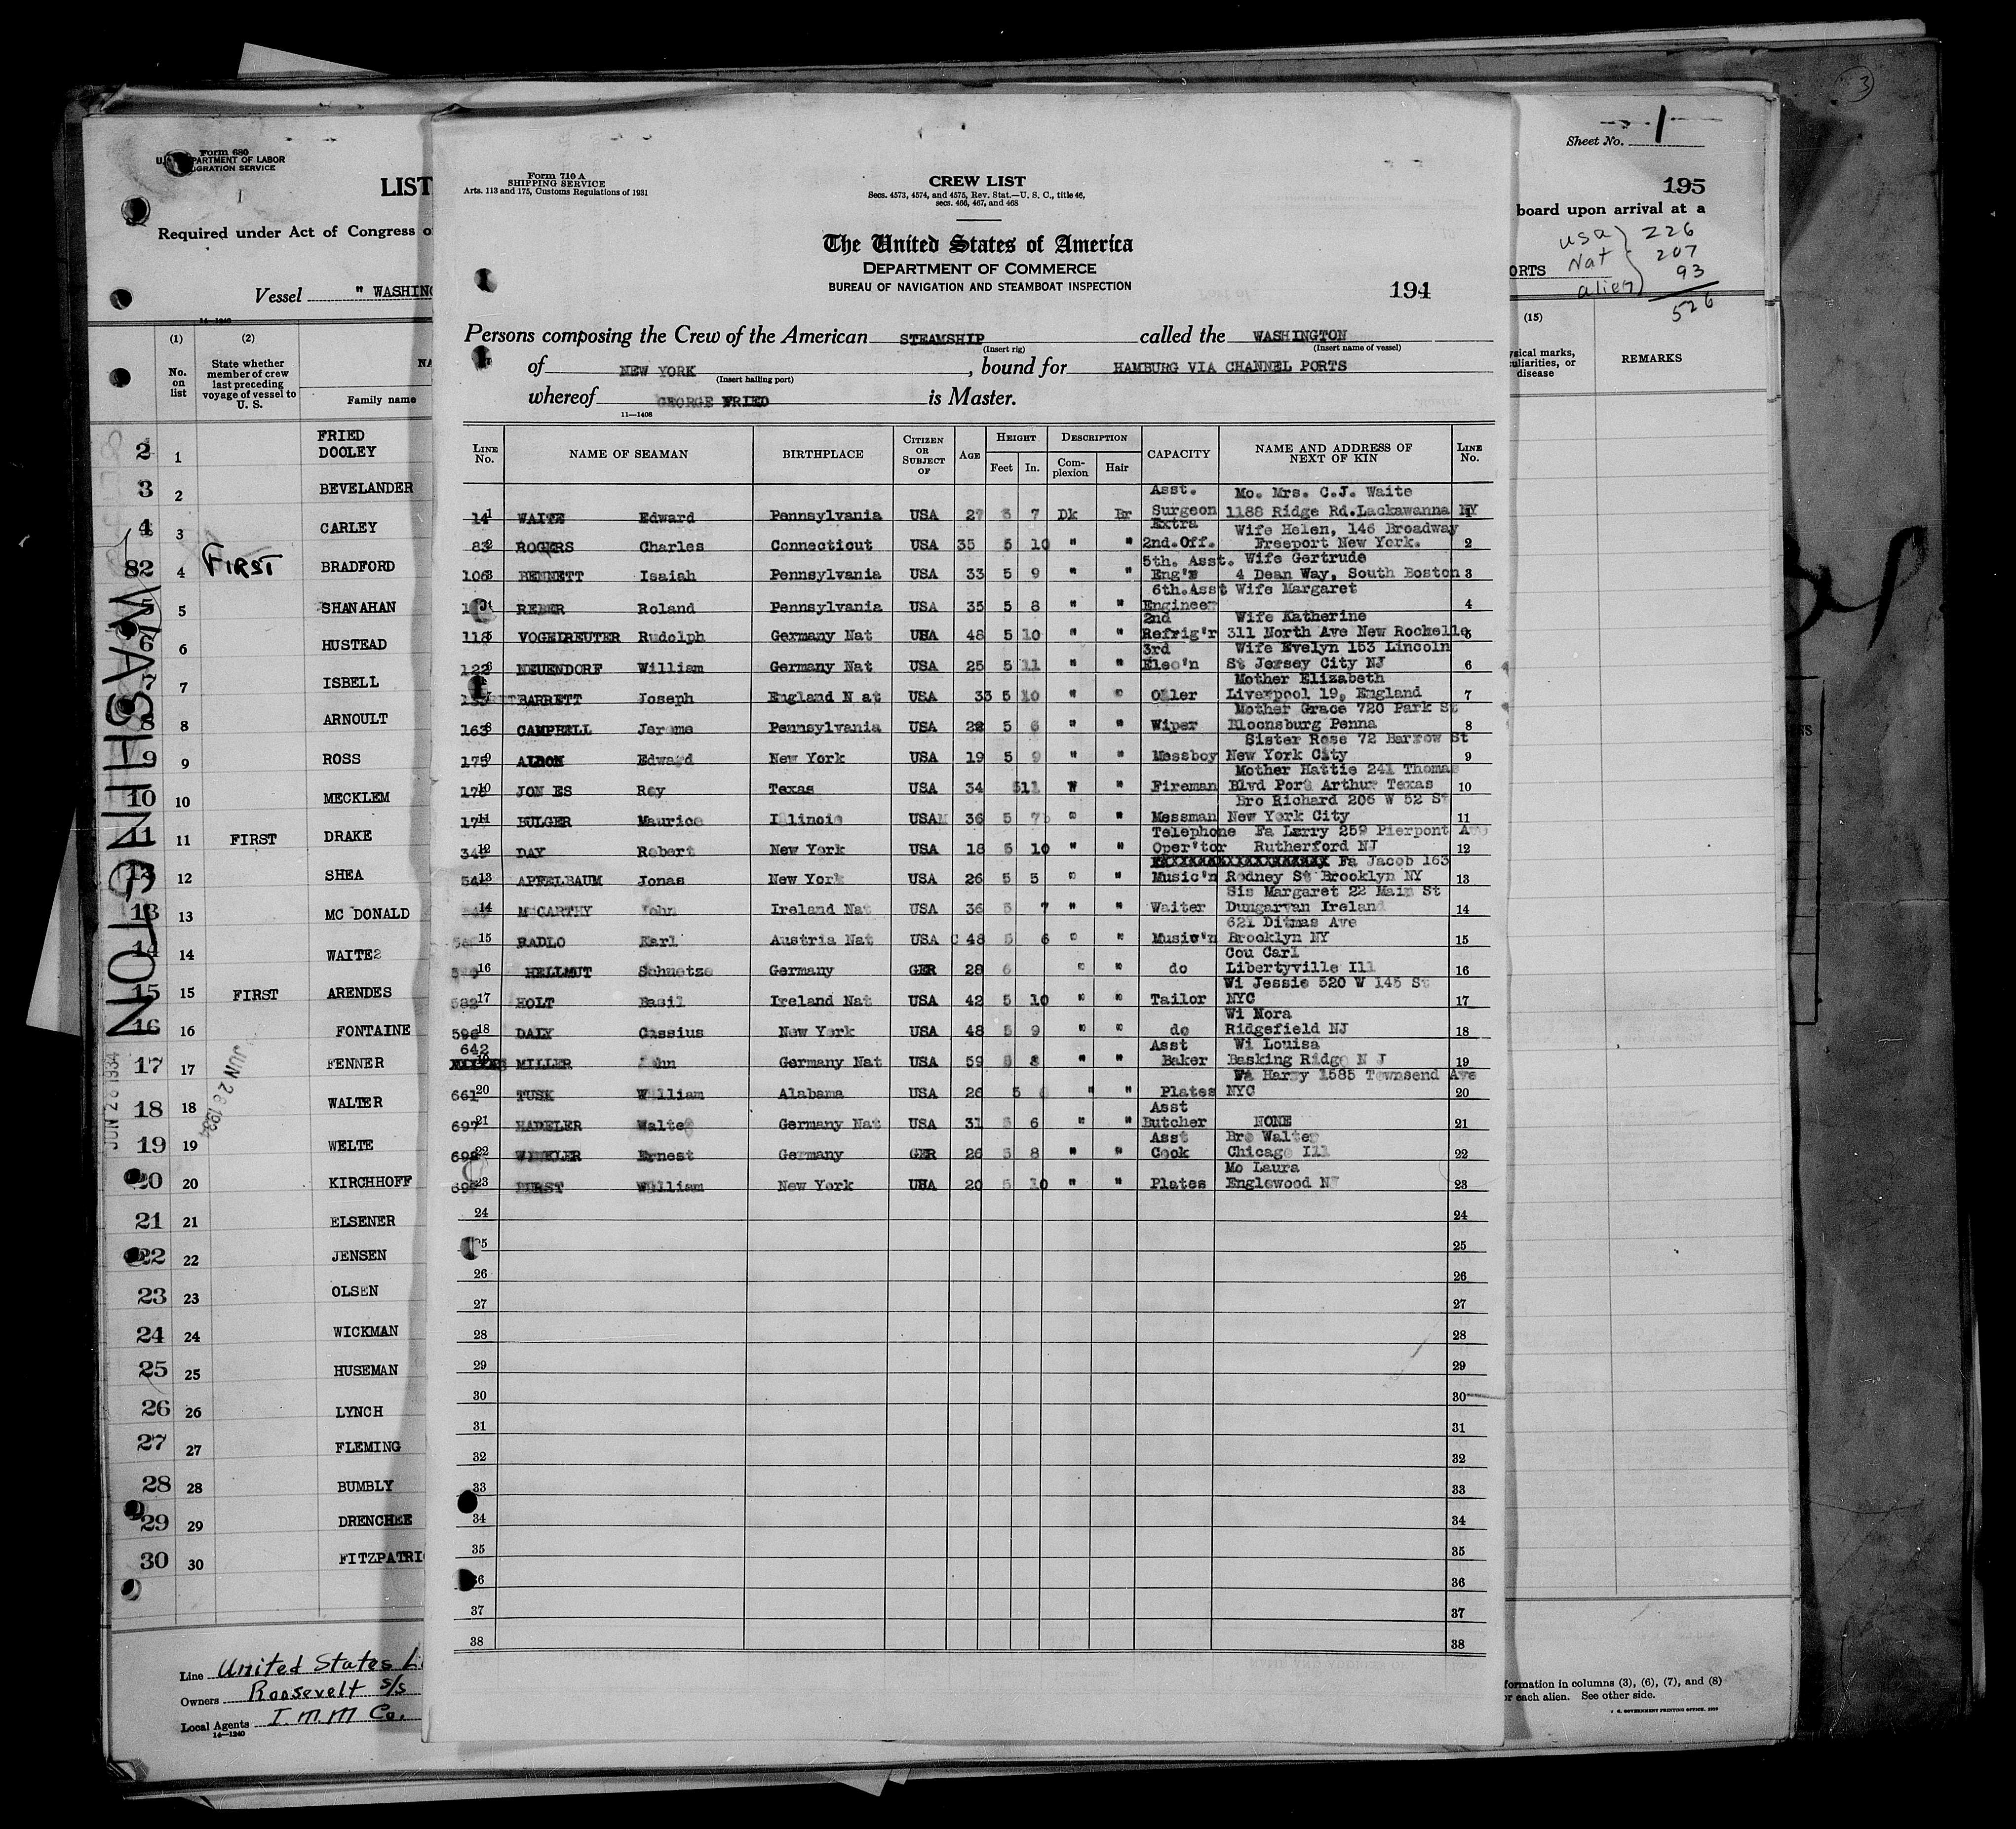 Form 680
U. S. DEPARTMENT OF LABOR
IMMIGRATION SERVICE
LIST
Required under Act of Congress o
Vessel " WASHING
14—1240
(1) (2)
No. on list
State whether member of crew last preceding voyage of vessel to U. S.
NA
Family name
2 1 FRIED
DOOLEY
3 2 BEVELANDER
4 3 CARLEY
82 4 FIRST BRADFORD
5 5 SHANAHAN
6 6 HUSTEAD
7 7 ISBELL
8 8 ARNOULT
9 9 ROSS
10 10 MECKLEM
11 11 FIRST DRAKE
12 12 SHEA
13 13 MC DONALD
14 14 WAITE
15 15 FIRST ARENDES
16 16 FONTAINE
17 17 FENNER
18 18 WALTER
19 19 WELTE
20 20 KIRCHHOFF
21 21 ELSENER
22 22 JENSEN
23 23 OLSEN
24 24 WICKMAN
25 25 HUSEMAN
26 26 LYNCH
27 27 FLEMING
28 28 BUMBLY
29 29 DRENCHEE
30 30 FITZPATRI
WASHINGTON
JUN 28 1934
JUN 28 1934
Line United States Li
Owners Roosevelt S/S
Local Agents I. M. M Co.
14—1240
Form 710 A
SHIPPING SERVICE
Arts. 113 and 175, Customs Regulations of 1931
CREW LIST
Secs. 4573, 4574, and 4575, Rev. Stat.—U. S. C., title 46,
secs. 466, 467, and 468
The United States of America
DEPARTMENT OF COMMERCE
BUREAU OF NAVIGATION AND STEAMBOAT INSPECTION
194
Persons composing the Crew of the American STEAMSHIP called the WASHINGTON
(Insert rig) (Insert name of vessel)
of NEW YORK, bound for HAMBURG VIA CHANNEL PORTS
(Insert hailing port)
whereof GEORGE FRIED is Master.
11—1408
LINE No. NAME OF SEAMAN BIRTHPLACE CITIZEN OR SUBJECT OF AGE HEIGHT Feet In. DESCRIPTION Complexion Hair CAPACITY NAME AND ADDRESS OF NEXT OF KIN LINE No.
Asst. Mo. Mrs. C.J. Waite
14 1 WAITE Edward Pennsylvania USA 27 5 7 Dk Br Surgeon 1188 Ridge Rd.Lackawanna NY
Extra Wife Helen, 146 Broadway
83 2 ROGERS Charles Connecticut USA 35 5 10 " " 2nd.Off. Freeport New York. 2
5th. Asst. Wife Gertrude
106 3 BENNETT Isaiah Pennsylvania USA 33 5 9 " " Eng'r 4 Dean Way, South Boston 3
6th.Asst Wife Margaret
REBER Roland Pennsylvania USA 35 5 8 " " Engineer 4
2nd Wife Katherine
118 5 VOGELREUTER Rudolph Germany Nat USA 48 5 10 " " Refrig'r 311 North Ave New Rochelle 5
3rd Wife Evelyn 153 Lincoln
122 6 NEUENDORF William Germany Nat USA 25 5 11 " " Elec'n St Jersey City NJ 6
Mother Elizabeth
BARRETT Joseph England N at USA 33 5 10 " " Oiler Liverpool 19, England 7
Mother Grace 720 Park St
163 8 CAMPBELL Jerome Pennsylvania USA 22 5 6 " " Wiper Bloomsburg Penna 8
Sister Rose 72 Barrow St
175 9 ALDON Edward New York USA 19 5 9 " " Messboy New York City 9
Mother Hattie 241 Thomas
10 JON ES Roy Texas USA 34 511 " " Fireman Blvd Port Arthur Texas 10
Bro Richard 206 W 52 St
11 BULGER Maurice Illinois USA 36 5 7 " " Messman New York City 11
Telephone Fa Larry 259 Pierpont Ave
12 DAY Robert New York USA 18 5 10 " " Oper'tor Rutherford NJ 12
Fa Jacob 163
13 APFELBAUM Jonas New York USA 26 5 5 " " Music'n Rodney St Brooklyn NY 13
Sis Margaret 22 Main St
14 MCCARTHY John Ireland Nat USA 36 5 7 " " Waiter Dungarvan Ireland 14
621 Ditmas Ave
15 RADLO Karl Austria Nat USA 48 5 6 " " Music'n Brooklyn NY 15
Cou Carl
16 HELLMUT Schuetze Germany GER 28 6 " " do Libertyville Ill 16
Wi Jessie 520 W 145 St
582 17 HOLT Basil Ireland Nat USA 42 5 10 " " Tailor NYC 17
Wi Nora
596 18 DALY Cassius New York USA 48 5 9 " " do Ridgefield NJ 18
642 Asst Wi Louisa
19 MILLER John Germany Nat USA 59 5 8 " " Baker Basking Ridge N J 19
Harry 1585 Townsend Ave
661 20 TUSK William Alabama USA 26 5 " " Plates NYC 20
Asst
697 21 HADELER Walter Germany Nat USA 31 5 6 " " Butcher NONE 21
Asst Bro Walter
698 22 WINKLER Ernest Germany GER 26 5 8 " " Cook Chicago Ill 22
Mo Laura
23 William New York USA 20 5 10 " " Plates Englewood NJ 23
24 24
25 25
26 26
27 27
28 28
29 29
30 30
31 31
32 32
33 33
34 34
35 35
36 36
37 37
38 38
3
Sheet No. 1
195
board upon arrival at a
ORTS
USA 226
Nat 207
alien 93
526
(15)
ysical marks, uliarities, or disease
REMARKS
formation in columns (3), (6), (7), and (8)
or each alien. See other side.
U. S. GOVERNMENT PRINTING OFFICE